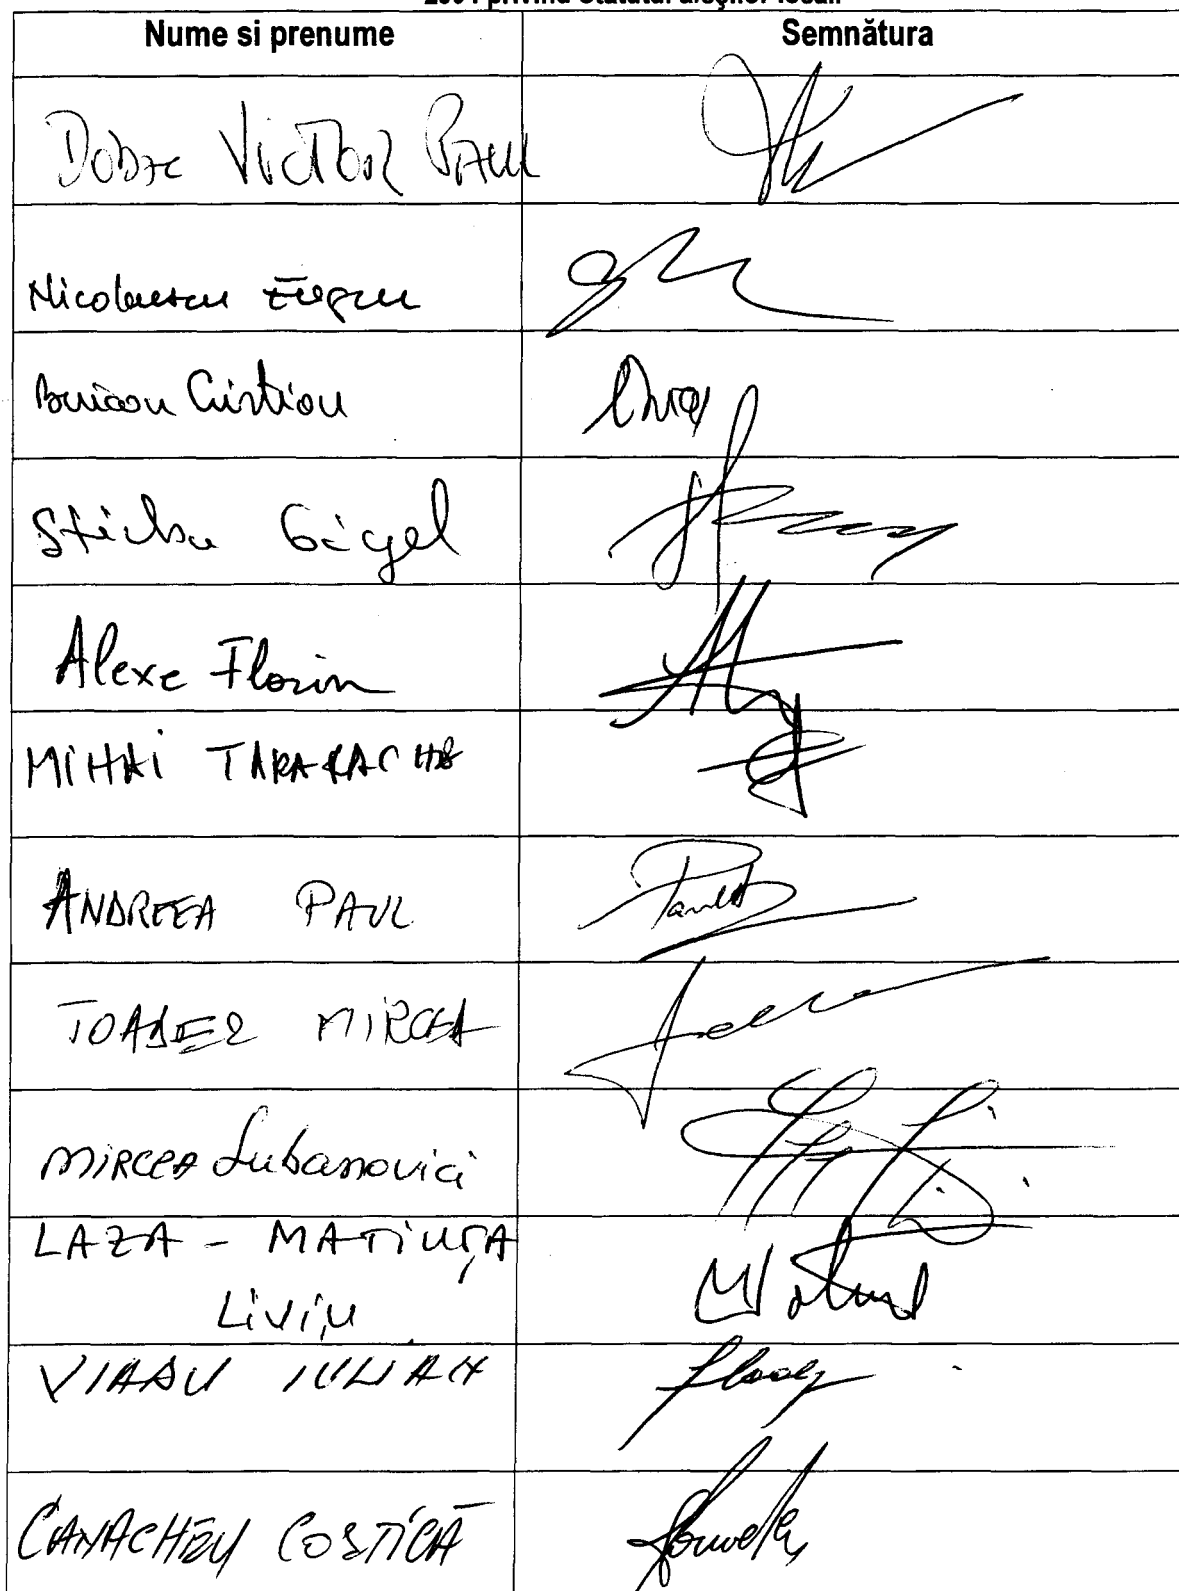 2004 privind Statutul aleşilor locali
Nume si prenume Semnătura
Dobre Victor Paul
Nicolaescu Eugen
Buican Cristian
Stirbu Gigel
Alexe Florin
MIHAI TARARACHE
ANDREEA PAUL
TOADER MIRCEA
MIRCEA Lubanovici
LAZA - MATIUȚA
LiViU
VLADU IULIAN
CANACHEU COSTICĂ